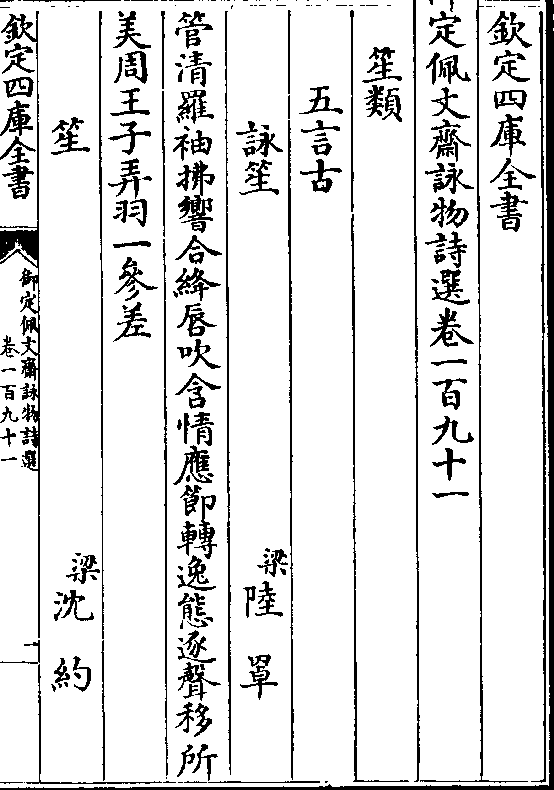 欽定四庫全書
御定佩文齋詠物詩選卷一百九十一
笙類
五言古
詠笙　梁陸罩
管清羅袖拂響合絳唇吹含情應節轉逸態逐聲移所
美周王子弄羽一參差
笙　梁沈約
欽定四庫全書
御定佩文齋詠物詩選
卷一百九十一
一